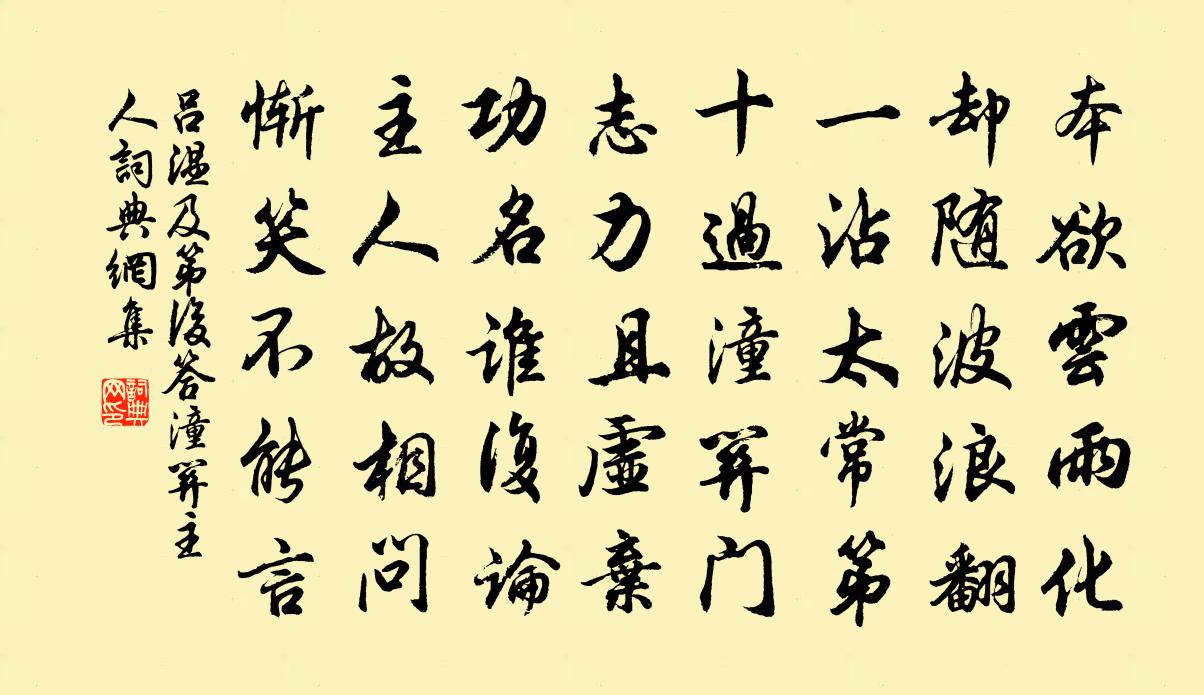 本欲雲雨化
却随波浪翻
一沾太常第
十過潼關门
志力且虛棄
功名誰復論
主人故相問
慚笑不能言
吕温及第後答潼關主
人詞典網集
詞典
网印